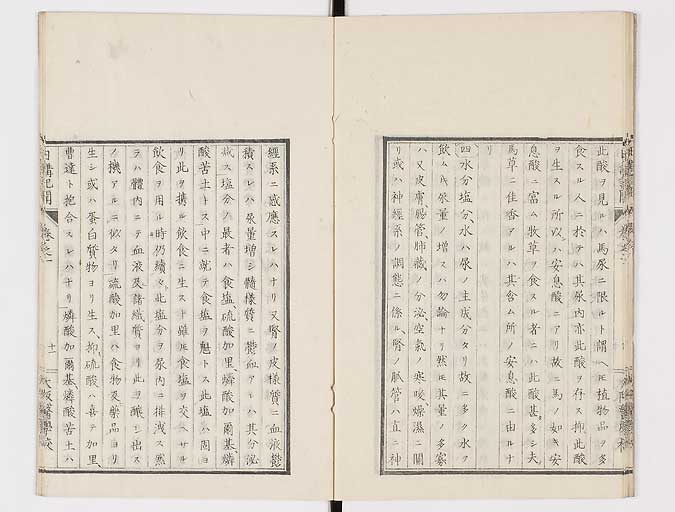 此酸ヲ見ルハ馬尿ニ限ルト謂ヘ𪜈植物品ヲ多
食スル人ニ於テハ其尿内亦此酸ヲ存ス抑此酸
ヲ生スル所以ハ安息酸ニアリ故ニ馬ノ如キ安
息酸ニ富ム牧草ヲ食スル者ニハ此酸甚多シ夫
馬草ニ佳香アルハ其含ム所ノ安息酸ニ由ルナ
リ
四水分塩分、水ハ尿ノ主成分タリ故ニ多ク水ヲ
飲ム𪜈尿量ノ増スハ勿論ナリ然𪜈其量ノ多寡
ハ又皮膚腸管肺蔵ノ分泌空氣ノ寒暖燥濕ニ關
リ或ハ神經系ノ調態ニ係ル、腎ノ脈管ハ直ニ神
經系ニ感應スレハナリ又腎ノ皮様質ニ血液鬱
積スレハ尿量増シ髓様質ニ鬱血アレハ其分泌
減ス塩分ノ最者ハ食塩、硫酸加里燐酸加爾基燐
酸苦土トス中ニ就テ食塩ヲ魁トス此塩ハ固ヨ
リ此ヲ攜ル飲食ニ生スト雖𪜈食塩ヲ交ヘサル
飲食ヲ用ル時仍續々此塩分ヲ尿内ニ排洩ス然
ラハ體内ニテ血液及諸織質ヨリ此ヲ醸シ出ス
ノ機アルニ似タリ、硫酸加里ハ食物及藥品ヨリ
生シ或ハ蛋白質物ヨリ生ス、抑硫酸ハ喜テ加里、
曹達ト抱合スレハナリ燐酸加爾基燐酸苦土ハ
十一
大坂醫學校